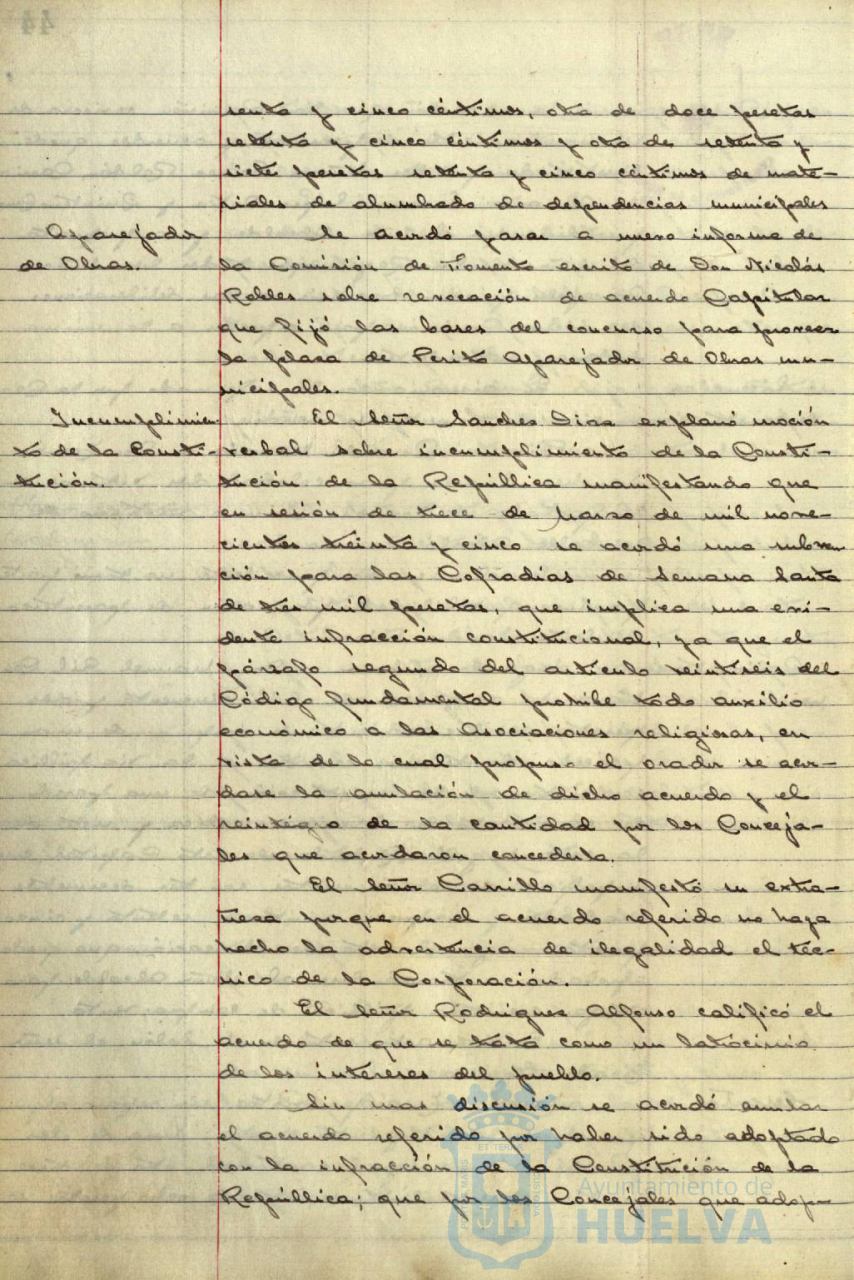 44
senta y cinco céntimos, otra de doce pesetas
setenta y cinco céntimos y otra de setenta y
siete pesetas setenta y cinco céntimos de mate-
riales de alumbrado de dependencias municipales
Aparejador
de Obras.
Se acordó pasar a nuevo informe de
la Comisión de Fomento escrito de Don Nicolás
Robles sobre revocación de acuerdo Capitular
que fijó las bases del concurso para proveer
la plaza de Perito Aparejador de Obras mu-
nicipales.
Incumplimien-
to de la Consti-
tución.
El Señor Sanches Dias explanó moción
verbal sobre incumplimiento de la Consti-
tución de la República manifestando que
en sesión de trece de Marzo de mil nove-
cientos treinta y cinco se acordó una subven
ción para las Cofradías de Semana Santa
de tres mil pesetas, que implica una evi-
dente infracción constitucional, ya que el
párrafo segundo del artículo veintiseis del
Código fundamental prohibe todo auxilio
económico a las Asociaciones religiosas, en
vista de lo cual propuso el orador se acor-
dase la anulación de dicho acuerdo y el
reintegro de la cantidad por los Conceja-
les que acordaron concederla.
El Señor Carrillo manifestó su extra-
ñesa porque en el acuerdo referido no haya
hecho la advertencia de ilegalidad el téc-
nico de la Corporación.
El Señor Rodrigues Alfonso calificó el
acuerdo de que se trata como un latrocinio
de los intereses del pueblo.
Sin mas discusión se acordó anular
el acuerdo referido por haber sido adoptado
con la infracción de la Constitución de la
República; que por los Concejales que adop-
Ayuntamiento de
HUELVA